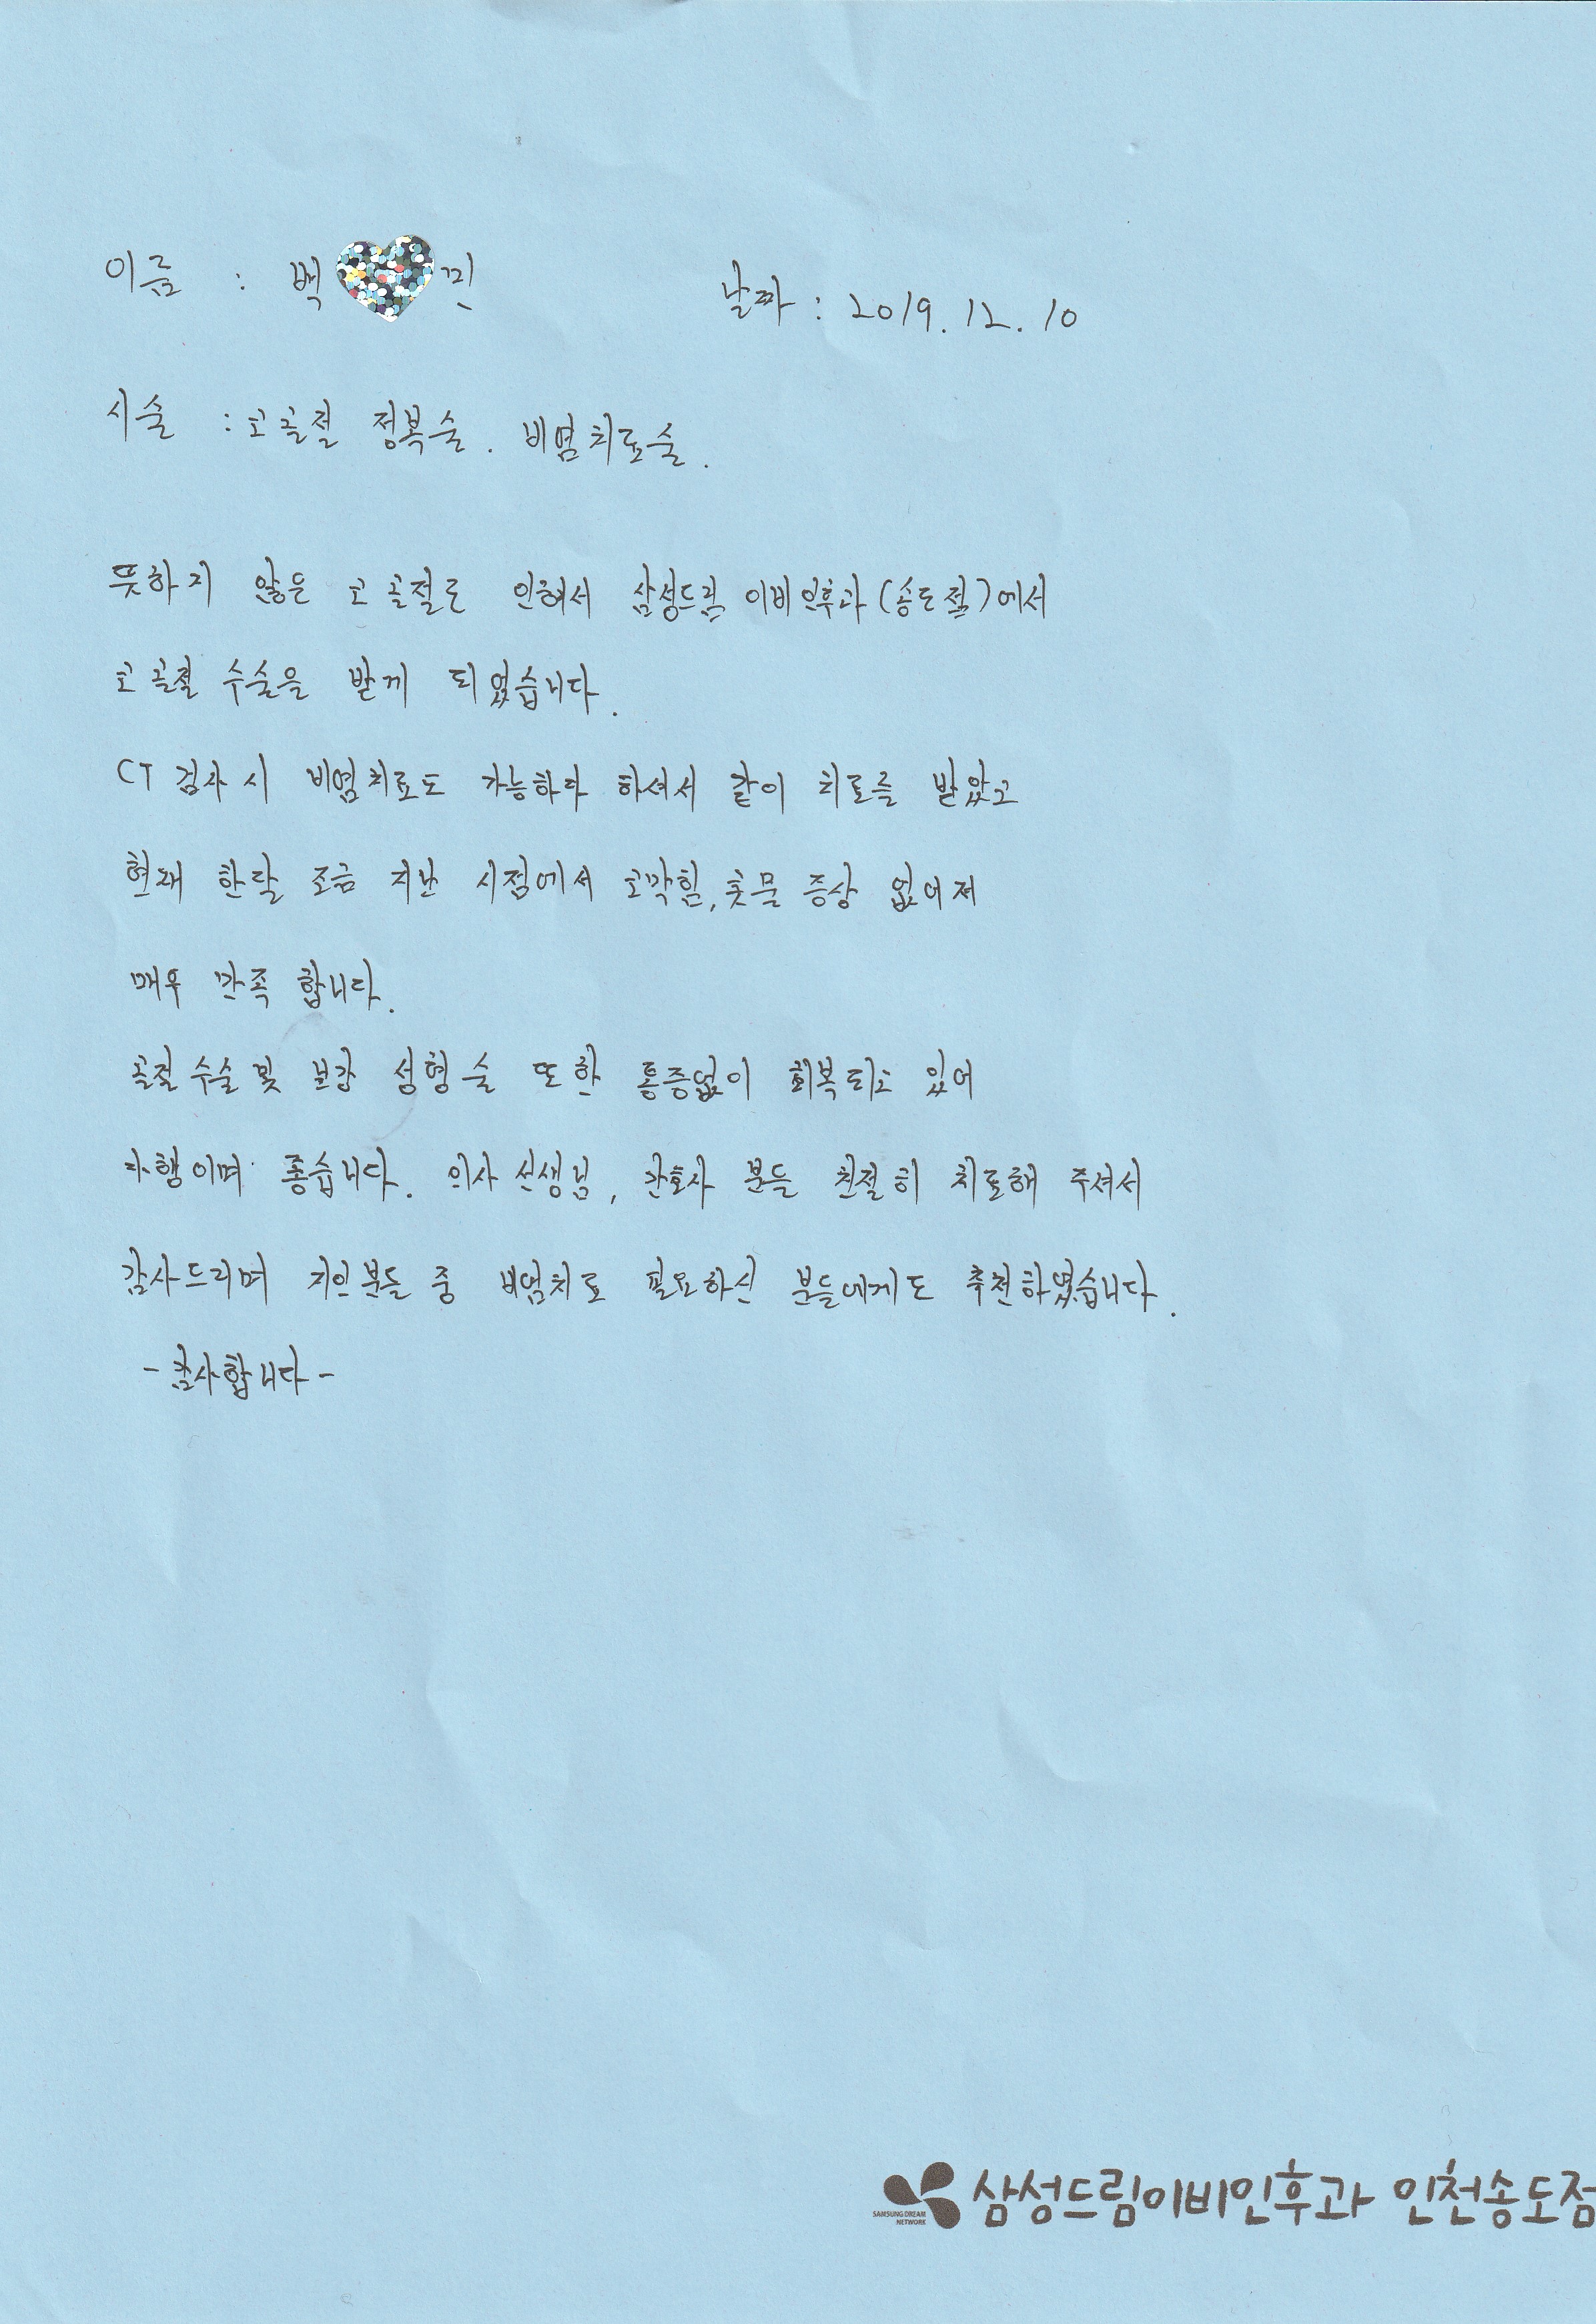 이름 : 백 민 날짜 : 2019. 12. 10
시술 : 코골절 정복술. 비염치료술.
뜻하지 않은 코 골절로 인해서 삼성드림 이비인후과(송도점)에서
코 골절 수술을 받게 되었습니다.
CT 검사시 비염치료도 가능하다 하셔서 같이 치료를 받았고
현재 한달 조금 지난 시점에서 코막힘, 콧물 증상 없어져
매우 만족 합니다.
골절 수술 및 보강 성형술 또한 통증없이 회복되고 있어
다행이며 좋습니다. 의사 선생님, 간호사 분들 친절히 치료해 주셔서
감사드리며 지인분들 중 비염치료 필요하신 분들에게도 추천하였습니다.
- 감사합니다 -
삼성드림이비인후과 인천송도점
SAMSUNG DREAM
NETWORK